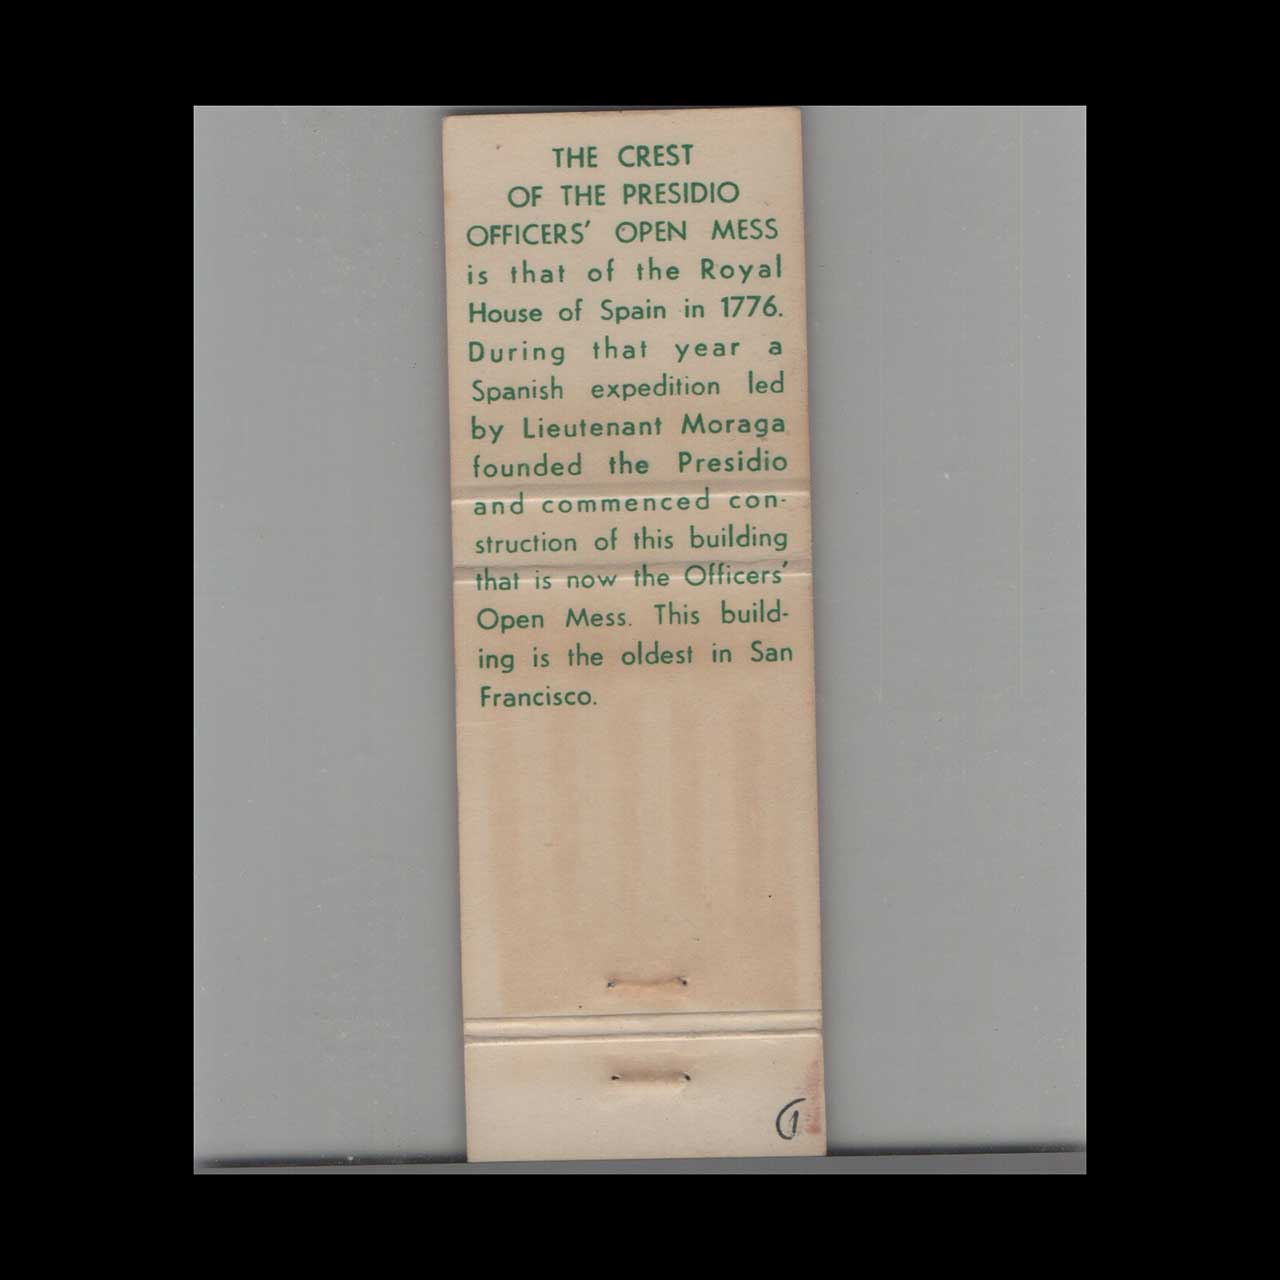 THE CREST
OF THE PRESIDIO
OFFICERS' OPEN MESS
is that of the Royal
House of Spain in 1776.
During that year a
Spanish expedition led
by Lieutenant Moraga
founded the Presidio
and commenced con-
struction of this building
that is now the Officers'
Open Mess. This build-
ing is the oldest in San
Francisco.
1